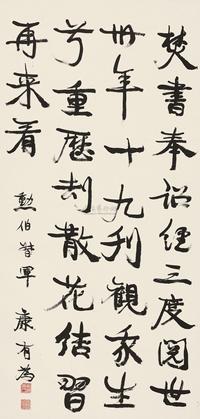 焚書奉詔經三度閱世
卅年十九刋觀我生
兮重歷劫散花結習
再来看
勳伯督軍 康有為